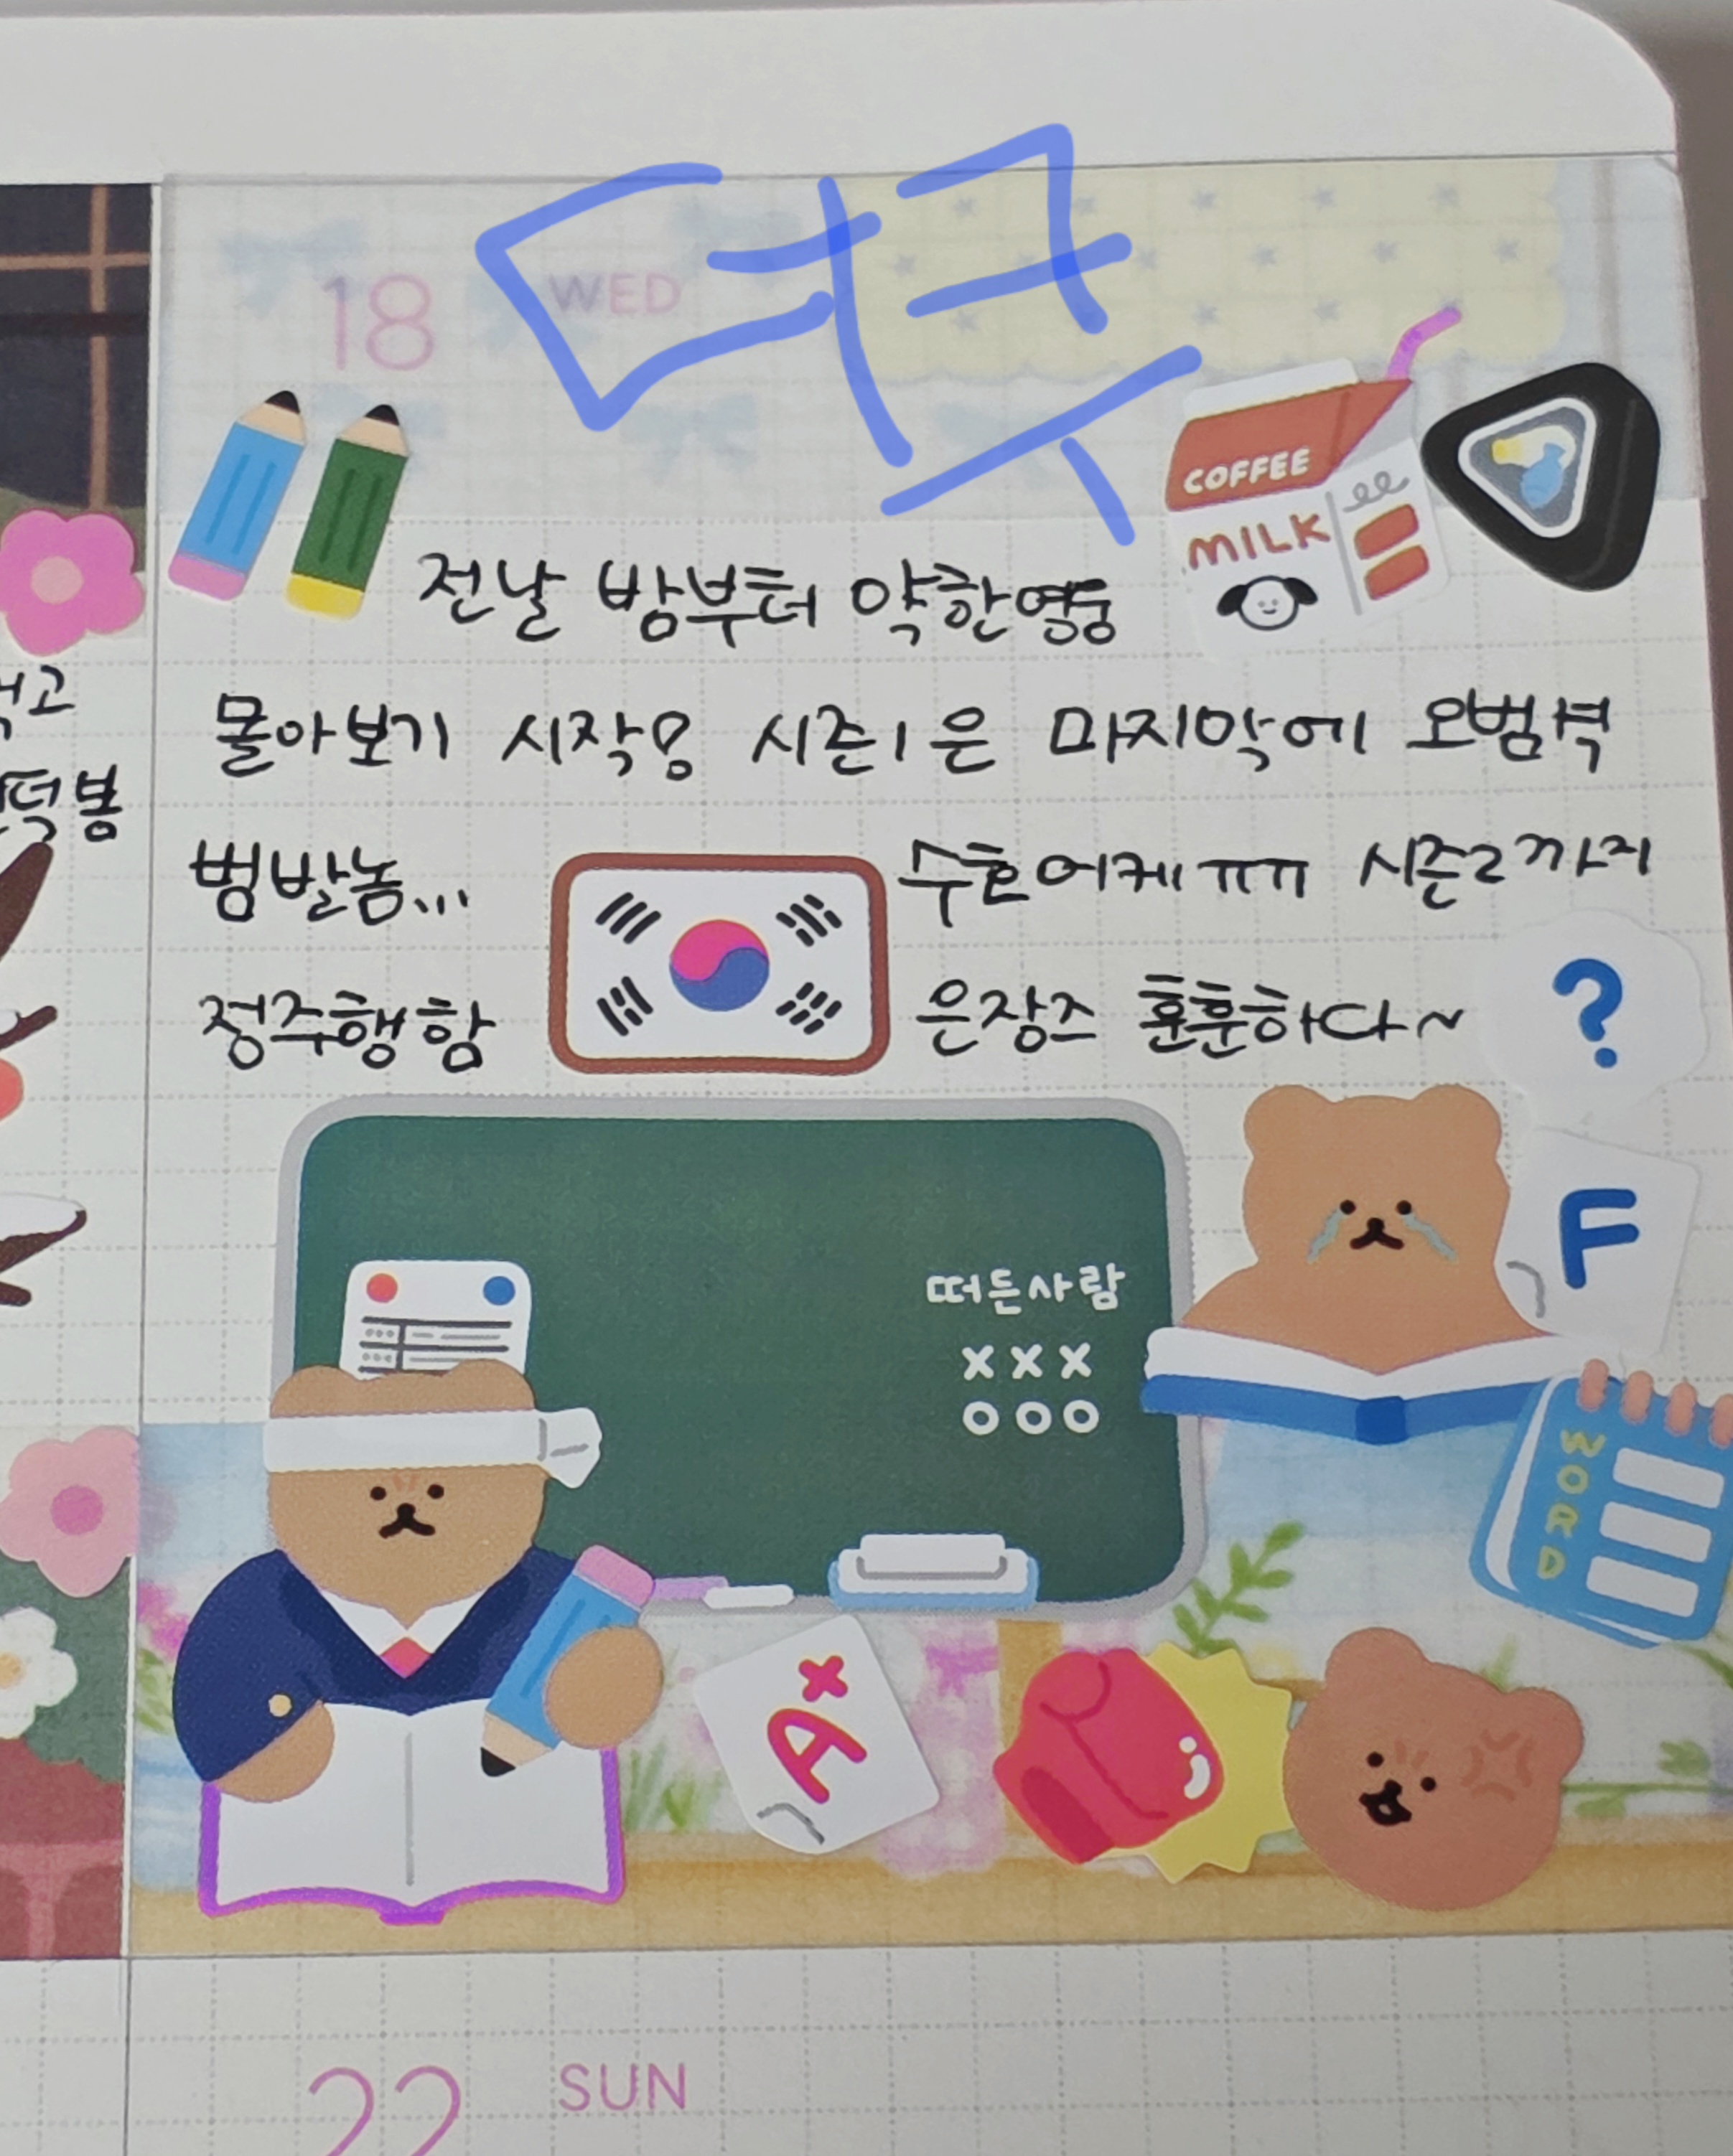 18 WED
더쿠
COFFEE
MILK
전날 밤부터 약한영웅
몰아보기 시작응 시즌1은 마지막에 오범석
범발놈...
수호어케ㅠㅠ 시즌2까지
정주행함
은장즈 훈훈하다~
먹고
떡봉
?
F
떠든사람
XXX
OOO
WORD
A+
22 SUN